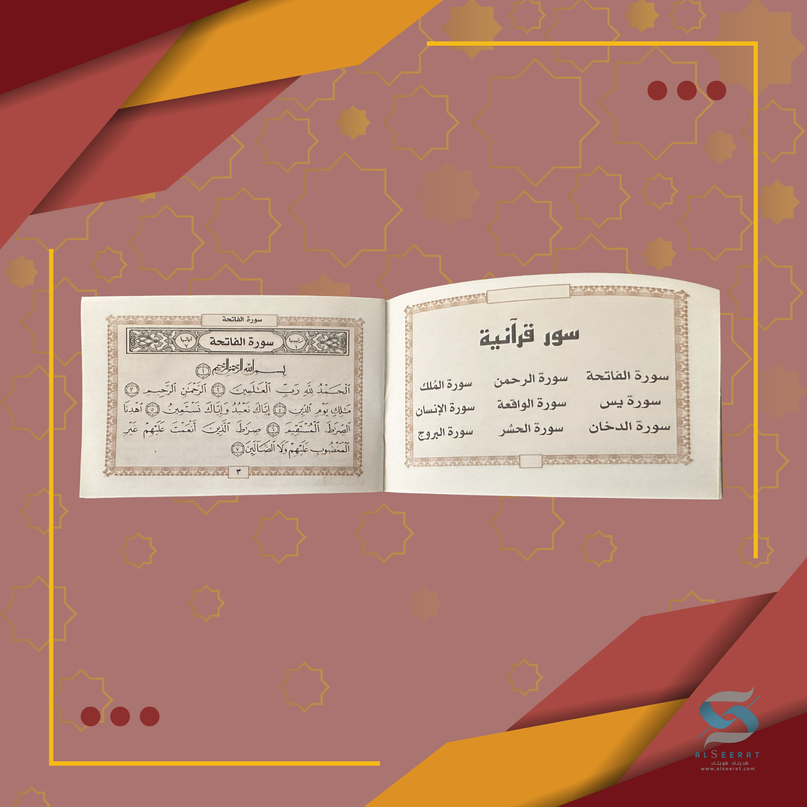 سور قرآنية
سورة الفاتحة سورة الرحمن سورة المُلك
سورة يس سورة الواقعة سورة الإنسان
سورة الدخان سورة الحشر سورة البروج
سورة الفاتحة
سورة الفاتحة
بِسْمِ اللَّهِ الرَّحْمَٰنِ الرَّحِيمِ ١
الْحَمْدُ لِلَّهِ رَبِّ الْعَٰلَمِينَ ٢ الرَّحْمَٰنِ الرَّحِيمِ ٣
مَٰلِكِ يَوْمِ الدِّينِ ٤ إِيَّاكَ نَعْبُدُ وَإِيَّاكَ نَسْتَعِينُ ٥ اهْدِنَا
الصِّرَٰطَ الْمُسْتَقِيمَ ٦ صِرَٰطَ الَّذِينَ أَنْعَمْتَ عَلَيْهِمْ غَيْرِ
الْمَغْضُوبِ عَلَيْهِمْ وَلَا الضَّالِّينَ ٧
٣
ALSEERAT
هديتك هويتك
www.alseerat.com